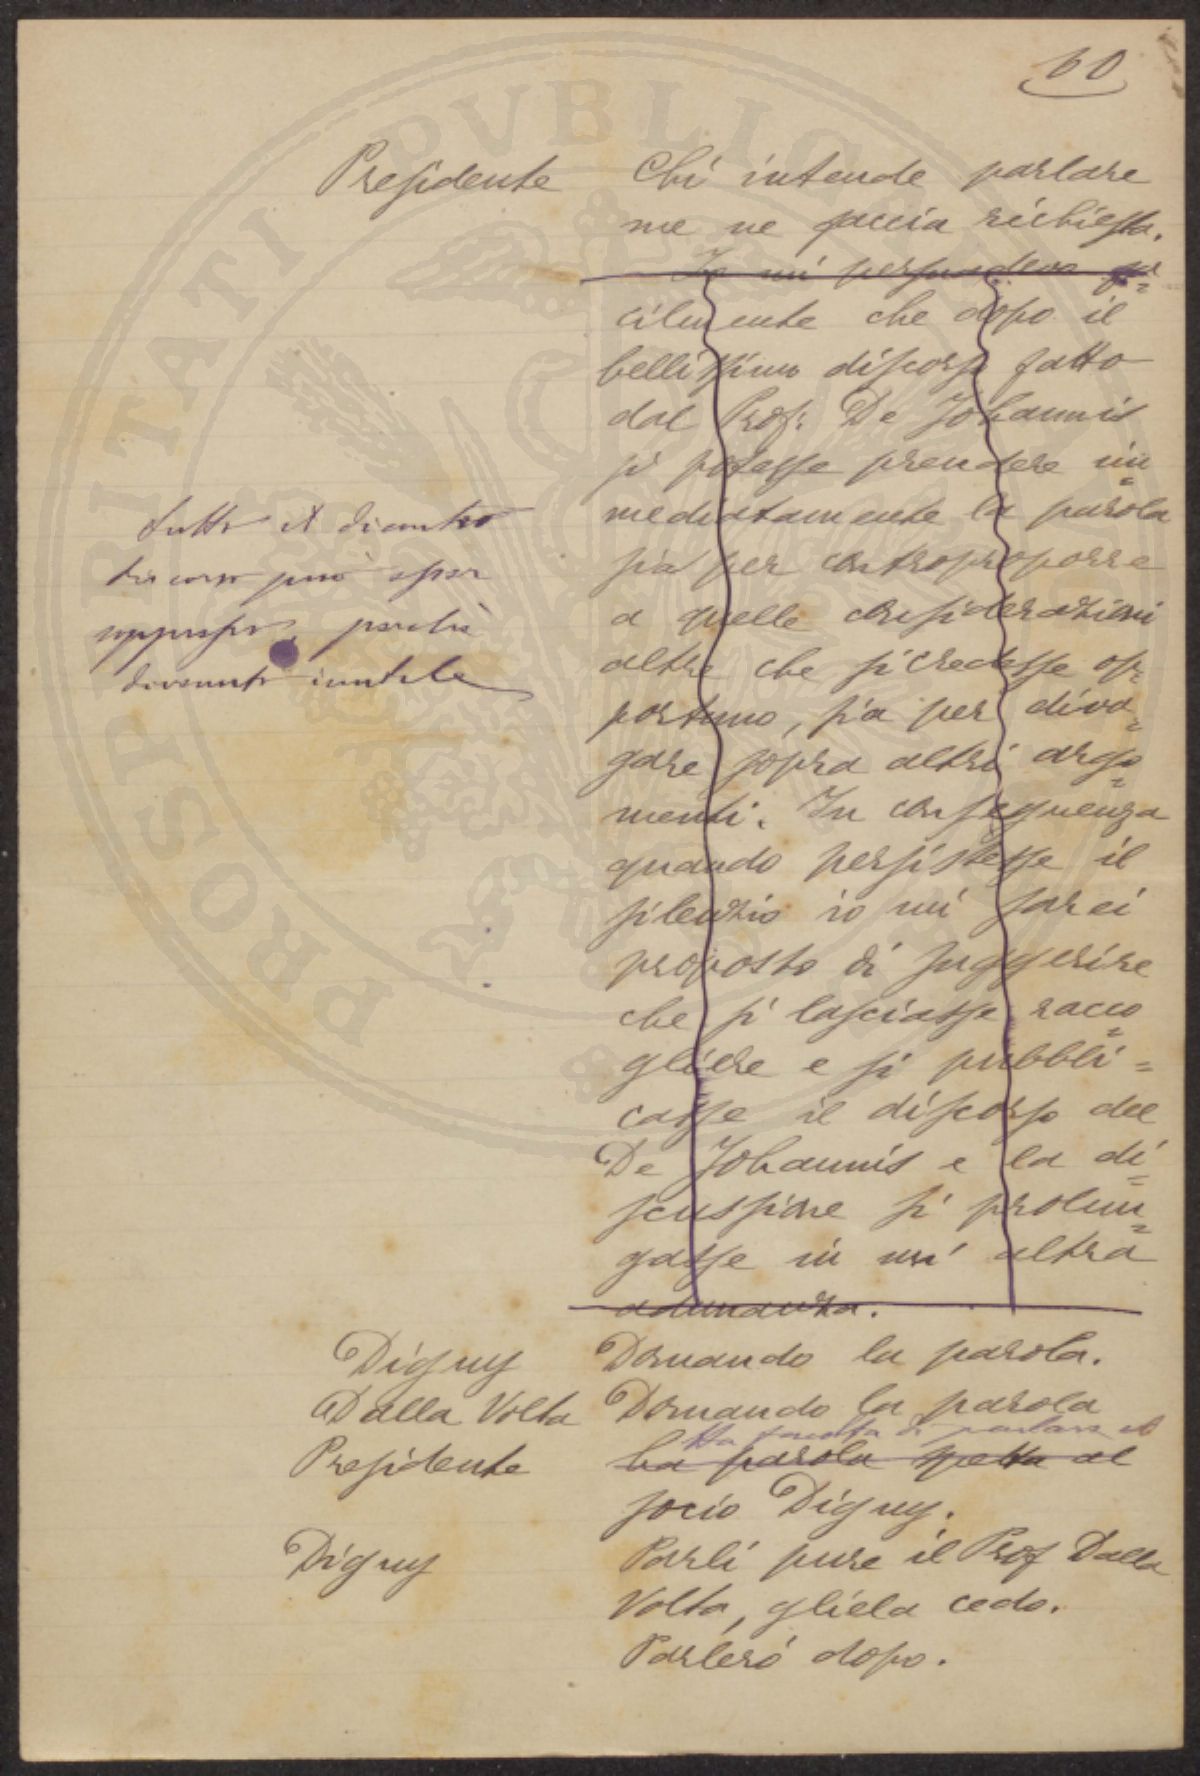 60
Presidente Chi intende parlare
me ne faccia richiesta.
Io mi persuadeva fa=
cilmente che dopo il
bellissimo discorso fatto
dal Prof. De Johannis
si potesse prendere im=
mediatamente la parola
sia per controproporre
a quelle considerazioni
altre che si credesse op=
portuno, sia per diva=
gare sopra altri argo=
menti. In conseguenza
quando persistesse il
silenzio io mi sarei
proposto di suggerire
che si lasciasse racco=
gliere e si pubbli=
casse il discorso del
De Johannis e la di=
scussione si prolun=
gasse in un' altra
adunanza.
tutto il
discorso può esser
soppresso, perchè
divenuto inutile
Digny Domando la parola.
Dalla Volta Domando la parola
Ha facoltà di parlare il
Presidente La parola spetta al
socio Digny.
Digny Parli pure il Prof Dalla
Volta, gliela cedo.
Parlerò dopo.
PROSPERITATI PVBLICAE